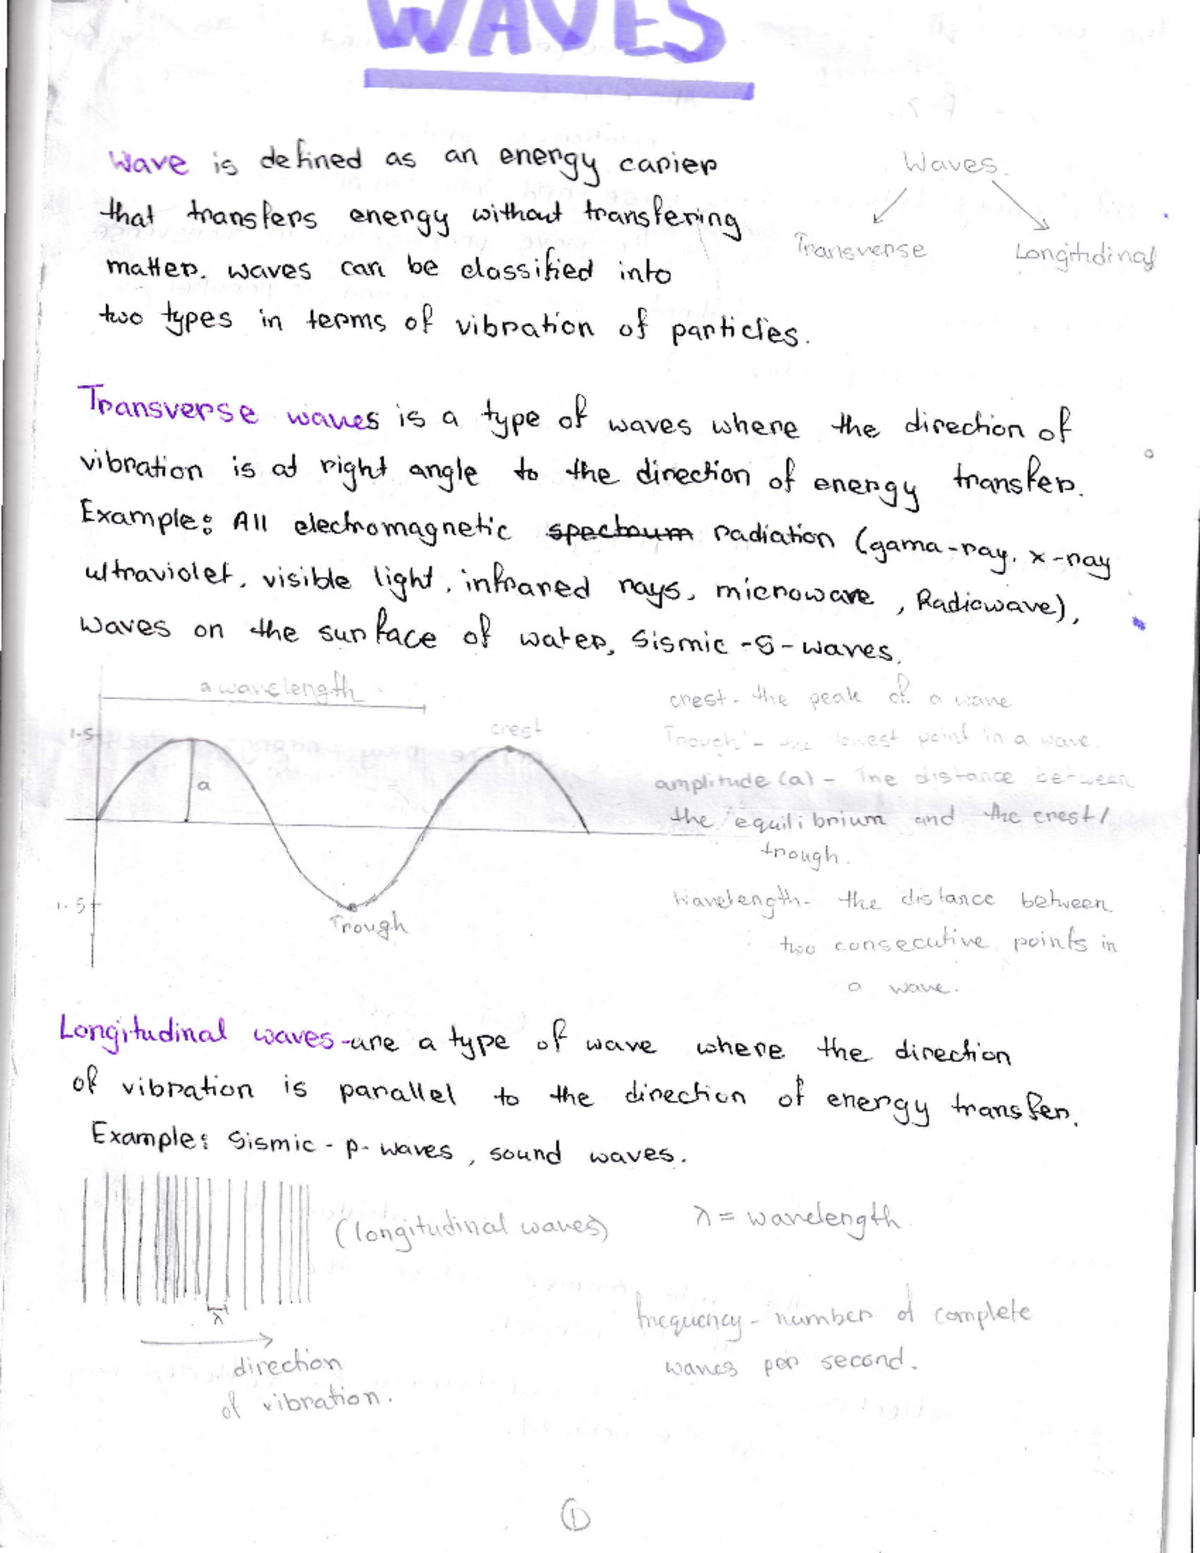 WAVES
Wave is defined as an energy carier
that transfers energy without transfering
matter. waves can be classified into
two types in terms of vibration of particles.
Waves.
Transverse
Longitidinal
Transverse waves is a type of waves where the direction of
vibration is at right angle to the direction of energy transfer.
Example: All electromagnetic spectrum radiation (gama-ray, x-ray
ultraviolet, visible light, infrared rays, microwave, Radiowave),
waves on the surface of water, Sismic -S- waves.
a wavelength
1.5
a
crest
1.5
Trough
crest - the peak of a wave
Trough - the lowest point in a wave.
amplitude (a) - The distance between
the equilibrium and the crest/
trough.
Wavelength - the distance between
two consecutive points in
a wave.
Longitudinal waves - are a type of wave where the direction
of vibration is parallel to the direction of energy transfer.
Example: Sismic - p- waves, sound waves.
(longitudinal waves)
λ = wavelength
λ
direction
of vibration.
frequency - number of complete
waves per second.
1